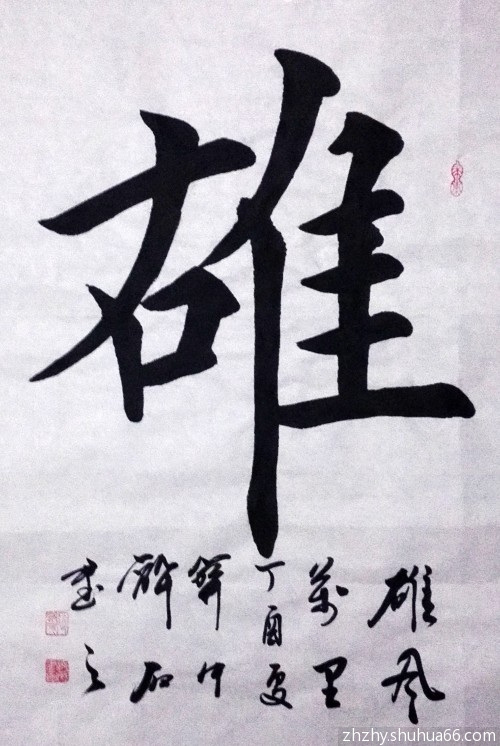 雄
雄风
萬里
丁酉夏
石
書之
zhzhy.shuhua66.com